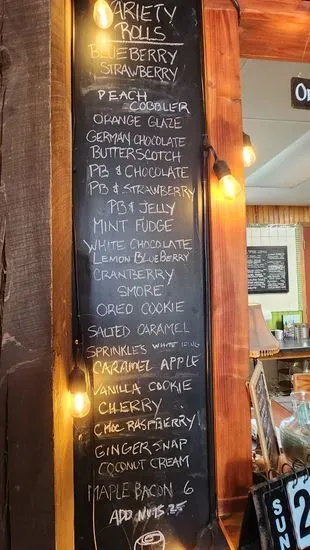 VARIETY
ROLLS
BLUEBERRY
STRAWBERRY
PEACH
COBBLER
ORANGE GLAZE
GERMAN CHOCOLATE
BUTTERSCOTCH
PB & CHOCOLATE
PB & STRAWBERRY
PB & JELLY
MINT FUDGE
WHITE CHOCOLATE
LEMON BLUEBERRY
CRANBERRY
SMORE
OREO COOKIE
SALTED CARAMEL
SPRINKLES WHITE ICING
CARAMEL APPLE
VANILLA COOKIE
CHERRY
CHOC RASPBERRY
GINGER SNAP
COCONUT CREAM
MAPLE BACON 6
ADD NUTS .25
Or
SUN
2